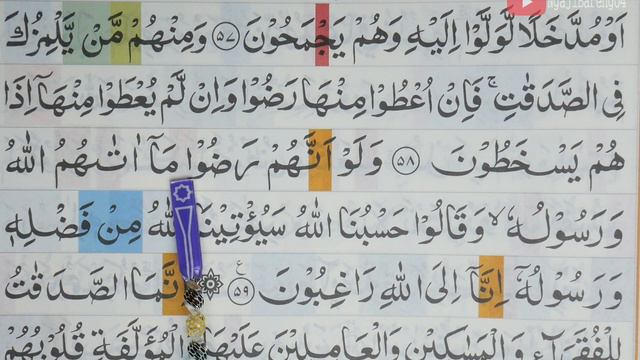 اَوْ مُدَّخَلًا لَّوَلَّوْا اِلَيْهِ وَهُمْ يَجْمَحُوْنَ ٥٧ وَمِنْهُمْ مَّنْ يَّلْمِزُكَ
فِى الصَّدَقٰتِۚ فَاِنْ اُعْطُوْا مِنْهَا رَضُوْا وَاِنْ لَّمْ يُعْطَوْا مِنْهَآ اِذَا
هُمْ يَسْخَطُوْنَ ٥٨ وَلَوْ اَنَّهُمْ رَضُوْا مَآ اٰتٰىهُمُ اللّٰهُ
وَرَسُوْلُهٗۙ وَقَالُوْا حَسْبُنَا اللّٰهُ سَيُؤْتِيْنَا اللّٰهُ مِنْ فَضْلِهٖ
وَرَسُوْلُهٗٓ اِنَّآ اِلَى اللّٰهِ رَاغِبُوْنَ ࣖ ٥٩ ۞ اِنَّمَا الصَّدَقٰتُ
لِلْفُقَرَآءِ وَالْمَسٰكِيْنِ وَالْعَامِلِيْنَ عَلَيْهَا وَالْمُؤَلَّفَةِ قُلُوْبُهُمْ